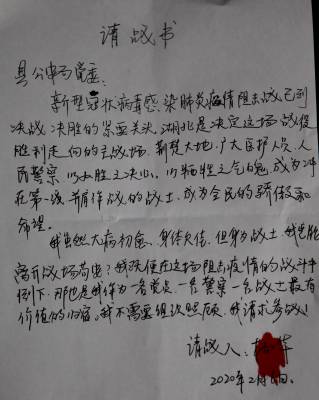 请战书
县公安局党委:
新型冠状病毒感染肺炎疫情阻击战已到
决战、决胜的紧要关头,湖北是决定这场战役
胜利走向的主战场,荆楚大地,广大医护人员、人
民警察,以必胜之决心,以牺牲之气魄,成为冲
在第一线并肩作战的战士,成为全民的骄傲和
希望。
我虽然大病初愈,身体欠佳,但身为战士,我岂能
离开战场苟安?我即便在这场阻击疫情的战斗中
倒下,那也是我作为一名党员、一名警察、一名战士最有
价值的归宿。我不需要组织照顾,我请求参战!
请战人:
2020年2月